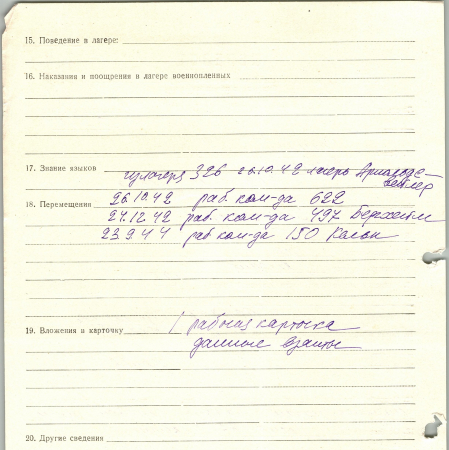 15. Поведение в лагере:
16. Наказания и поощрения в лагере военнопленных
17. Знание языков
326 26.10.42 лагерь Арнольдс-
вейлер
18. Перемещения 26.10.42 раб. ком-да 622
24.12.42 раб. ком-да 497 Берхейм
23.9.44 раб ком-да 150 Кельн
19. Вложения в карточку 1 рабочая карточка
данные взяты
20. Другие сведения